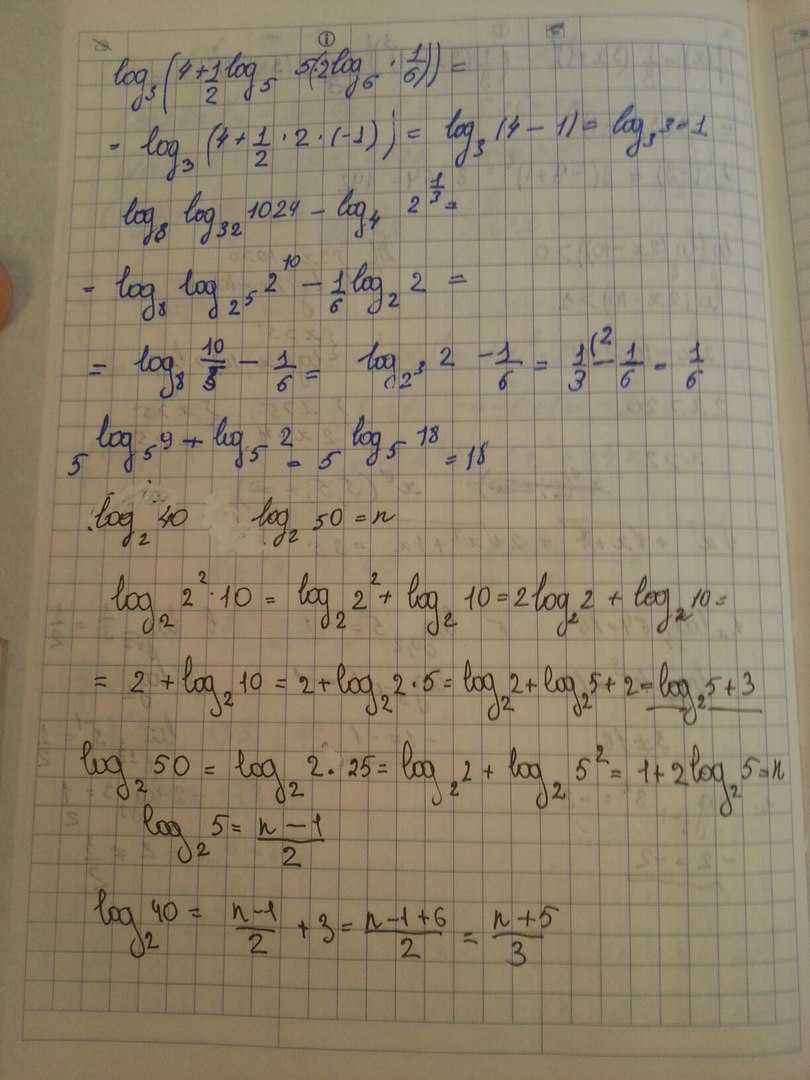 log₃(4+1/2 log₅ 5(2log₆ · 1/6)) =
= log₃ (4+1/2 · 2 · (-1)) = log₃ (4 - 1) = log₃ 3 = 1
log₈ log₃₂ 1024 - log₄ 2^(1/3) =
= log₈ log_(2^5) 2^10 - 1/6 log₂ 2 =
= log₈ 10/5 - 1/6 = log_(2^3) 2 - 1/6 = 1/3 (2 - 1/6 = 1/6
5^(log₅ 9 + log₅ 2) = 5^(log₅ 18) = 18
log₂ 40 log₂ 50 = n
log₂ 2² · 10 = log₂ 2² + log₂ 10 = 2log₂ 2 + log₂ 10 =
= 2 + log₂ 10 = 2 + log₂ 2 · 5 = log₂ 2 + log₂ 5 + 2 = log₂ 5 + 3
log₂ 50 = log₂ 2 · 25 = log₂ 2 + log₂ 5² = 1 + 2log₂ 5 = n
log₂ 5 = (n - 1)/2
log₂ 40 = (n-1)/2 + 3 = (n-1+6)/2 = (n+5)/3